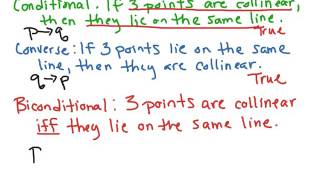 Conditional: If 3 points are collinear,
then they lie on the same line.
p→q True
Converse: If 3 points lie on the same
line, then they are collinear.
q→p True
Biconditional: 3 points are collinear
iff they lie on the same line.